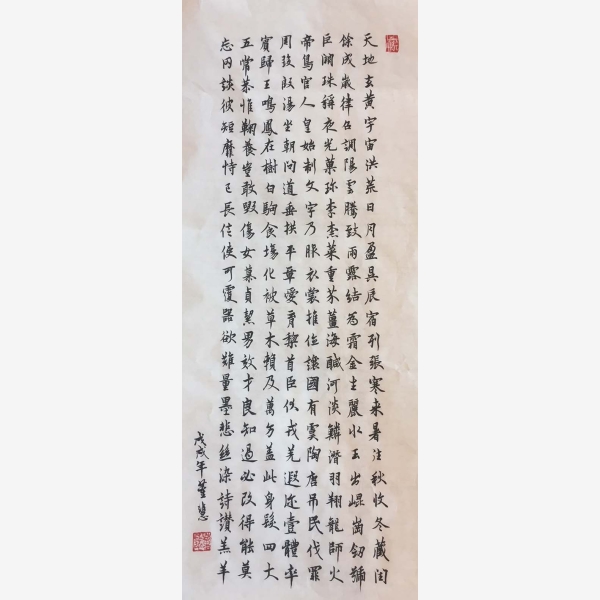 天地玄黃宇宙洪荒日月盈昃辰宿列張寒来暑往秋收冬藏閏
餘成歲律呂調陽雲騰致雨露結為霜金生麗水玉出崐崗釰號
巨闕珠稱夜光菓珍李柰菜重芥薑海鹹河淡鱗潛羽翔龍師火
帝鳥官人皇始制文字乃服衣裳推位讓國有虞陶唐吊民伐罪
周發殷湯坐朝問道垂拱平章愛育黎首臣伏戎羌遐迩壹體率
賓歸王鳴鳳在樹白駒食場化被草木賴及萬方蓋此身髮四大
五常恭惟鞠養豈敢毀傷女慕貞絜男效才良知過必改得能莫
忘罔談彼短靡恃己長信使可覆器欲難量墨悲絲染詩讚羔羊
戊戌年董慧